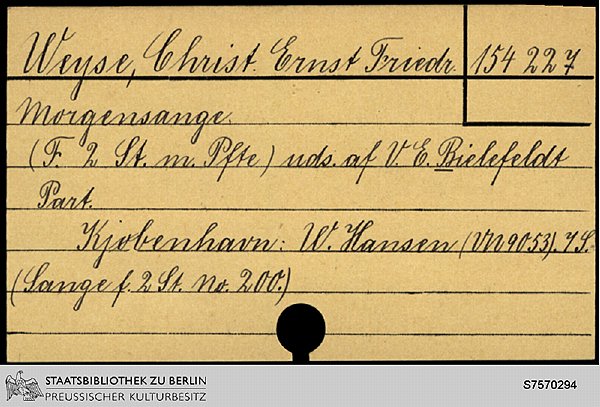 Weyse, Christ. Ernst Friedr. 154 227
Morgensange.
(F. 2 St. m. Pfte) uds. af V. E. Bielefeldt
Part.
Kjøbenhavn: W. Hansen (VN 9053). 7 S.
(Sange f. 2 St. No. 200.)
STAATSBIBLIOTHEK ZU BERLIN
PREUSSISCHER KULTURBESITZ
S7570294